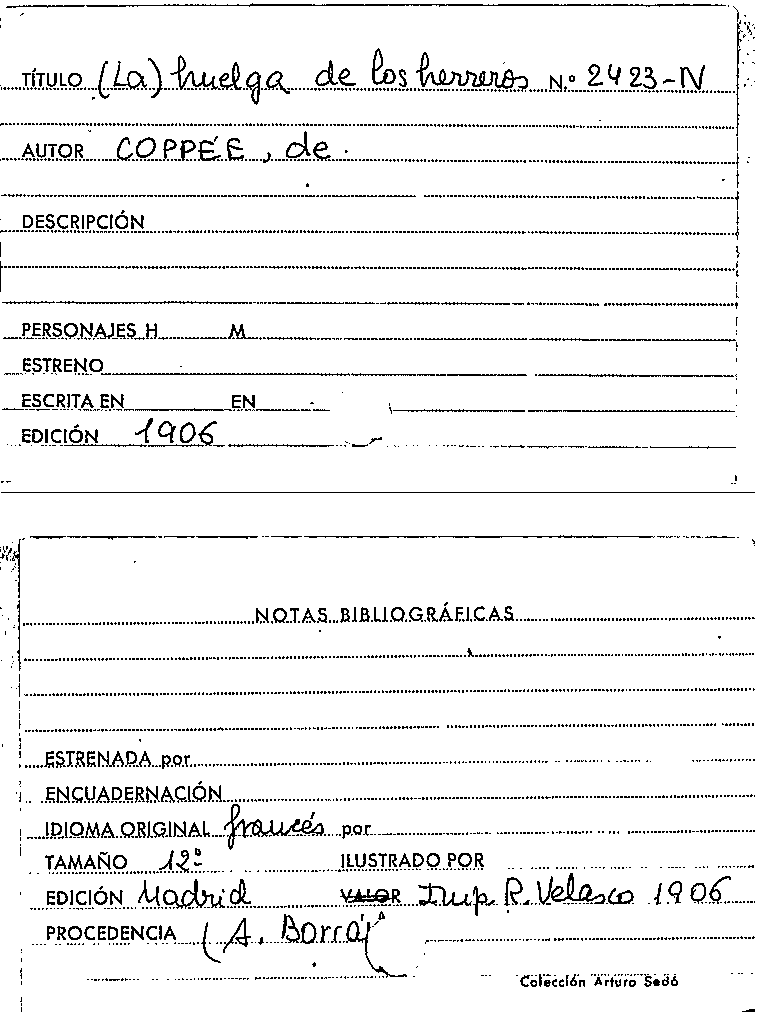 TÍTULO (La) huelga de los herreros N.º 2423-IV
AUTOR COPPÉE, de
DESCRIPCIÓN
PERSONAJES H M
ESTRENO
ESCRITA EN EN
EDICIÓN 1906
NOTAS BIBLIOGRÁFICAS
ESTRENADA por
ENCUADERNACIÓN
IDIOMA ORIGINAL francés por
TAMAÑO 12º
ILUSTRADO POR
EDICIÓN Madrid VALOR Imp. R. Velasco 1906
PROCEDENCIA (A. Borrás)
Colección Arturo Sedó